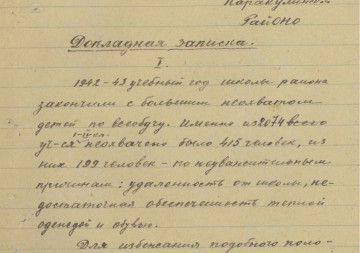 Каракулинский
РайОНО
Докладная записка.
I.
1942-43 учебный год школы района
закончили с большим неохватом
детей по всеобучу. Именно из 2074 всего
I-IV кл.
уч-ся неохвачено было 415 человек, из
них 199 человек - по неуважительным
причинам: удаленность от школы, не-
достаточная обеспеченность теплой
одеждой и обувью.
Для избежания подобного поло-